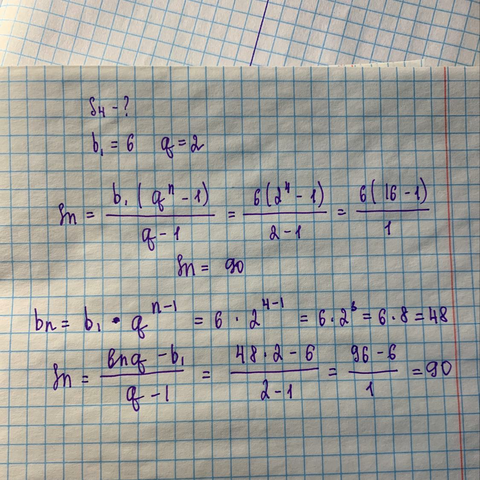 S₄ - ?
b₁ = 6 q = 2
Sn = b₁(qⁿ - 1) / q - 1 = 6(2⁴ - 1) / 2 - 1 = 6(16 - 1) / 1
Sn = 90
bn = b₁ • qⁿ⁻¹ = 6 · 2⁴⁻¹ = 6 · 2³ = 6 · 8 = 48
Sn = bnq - b₁ / q - 1 = 48 · 2 - 6 / 2 - 1 = 96 - 6 / 1 = 90